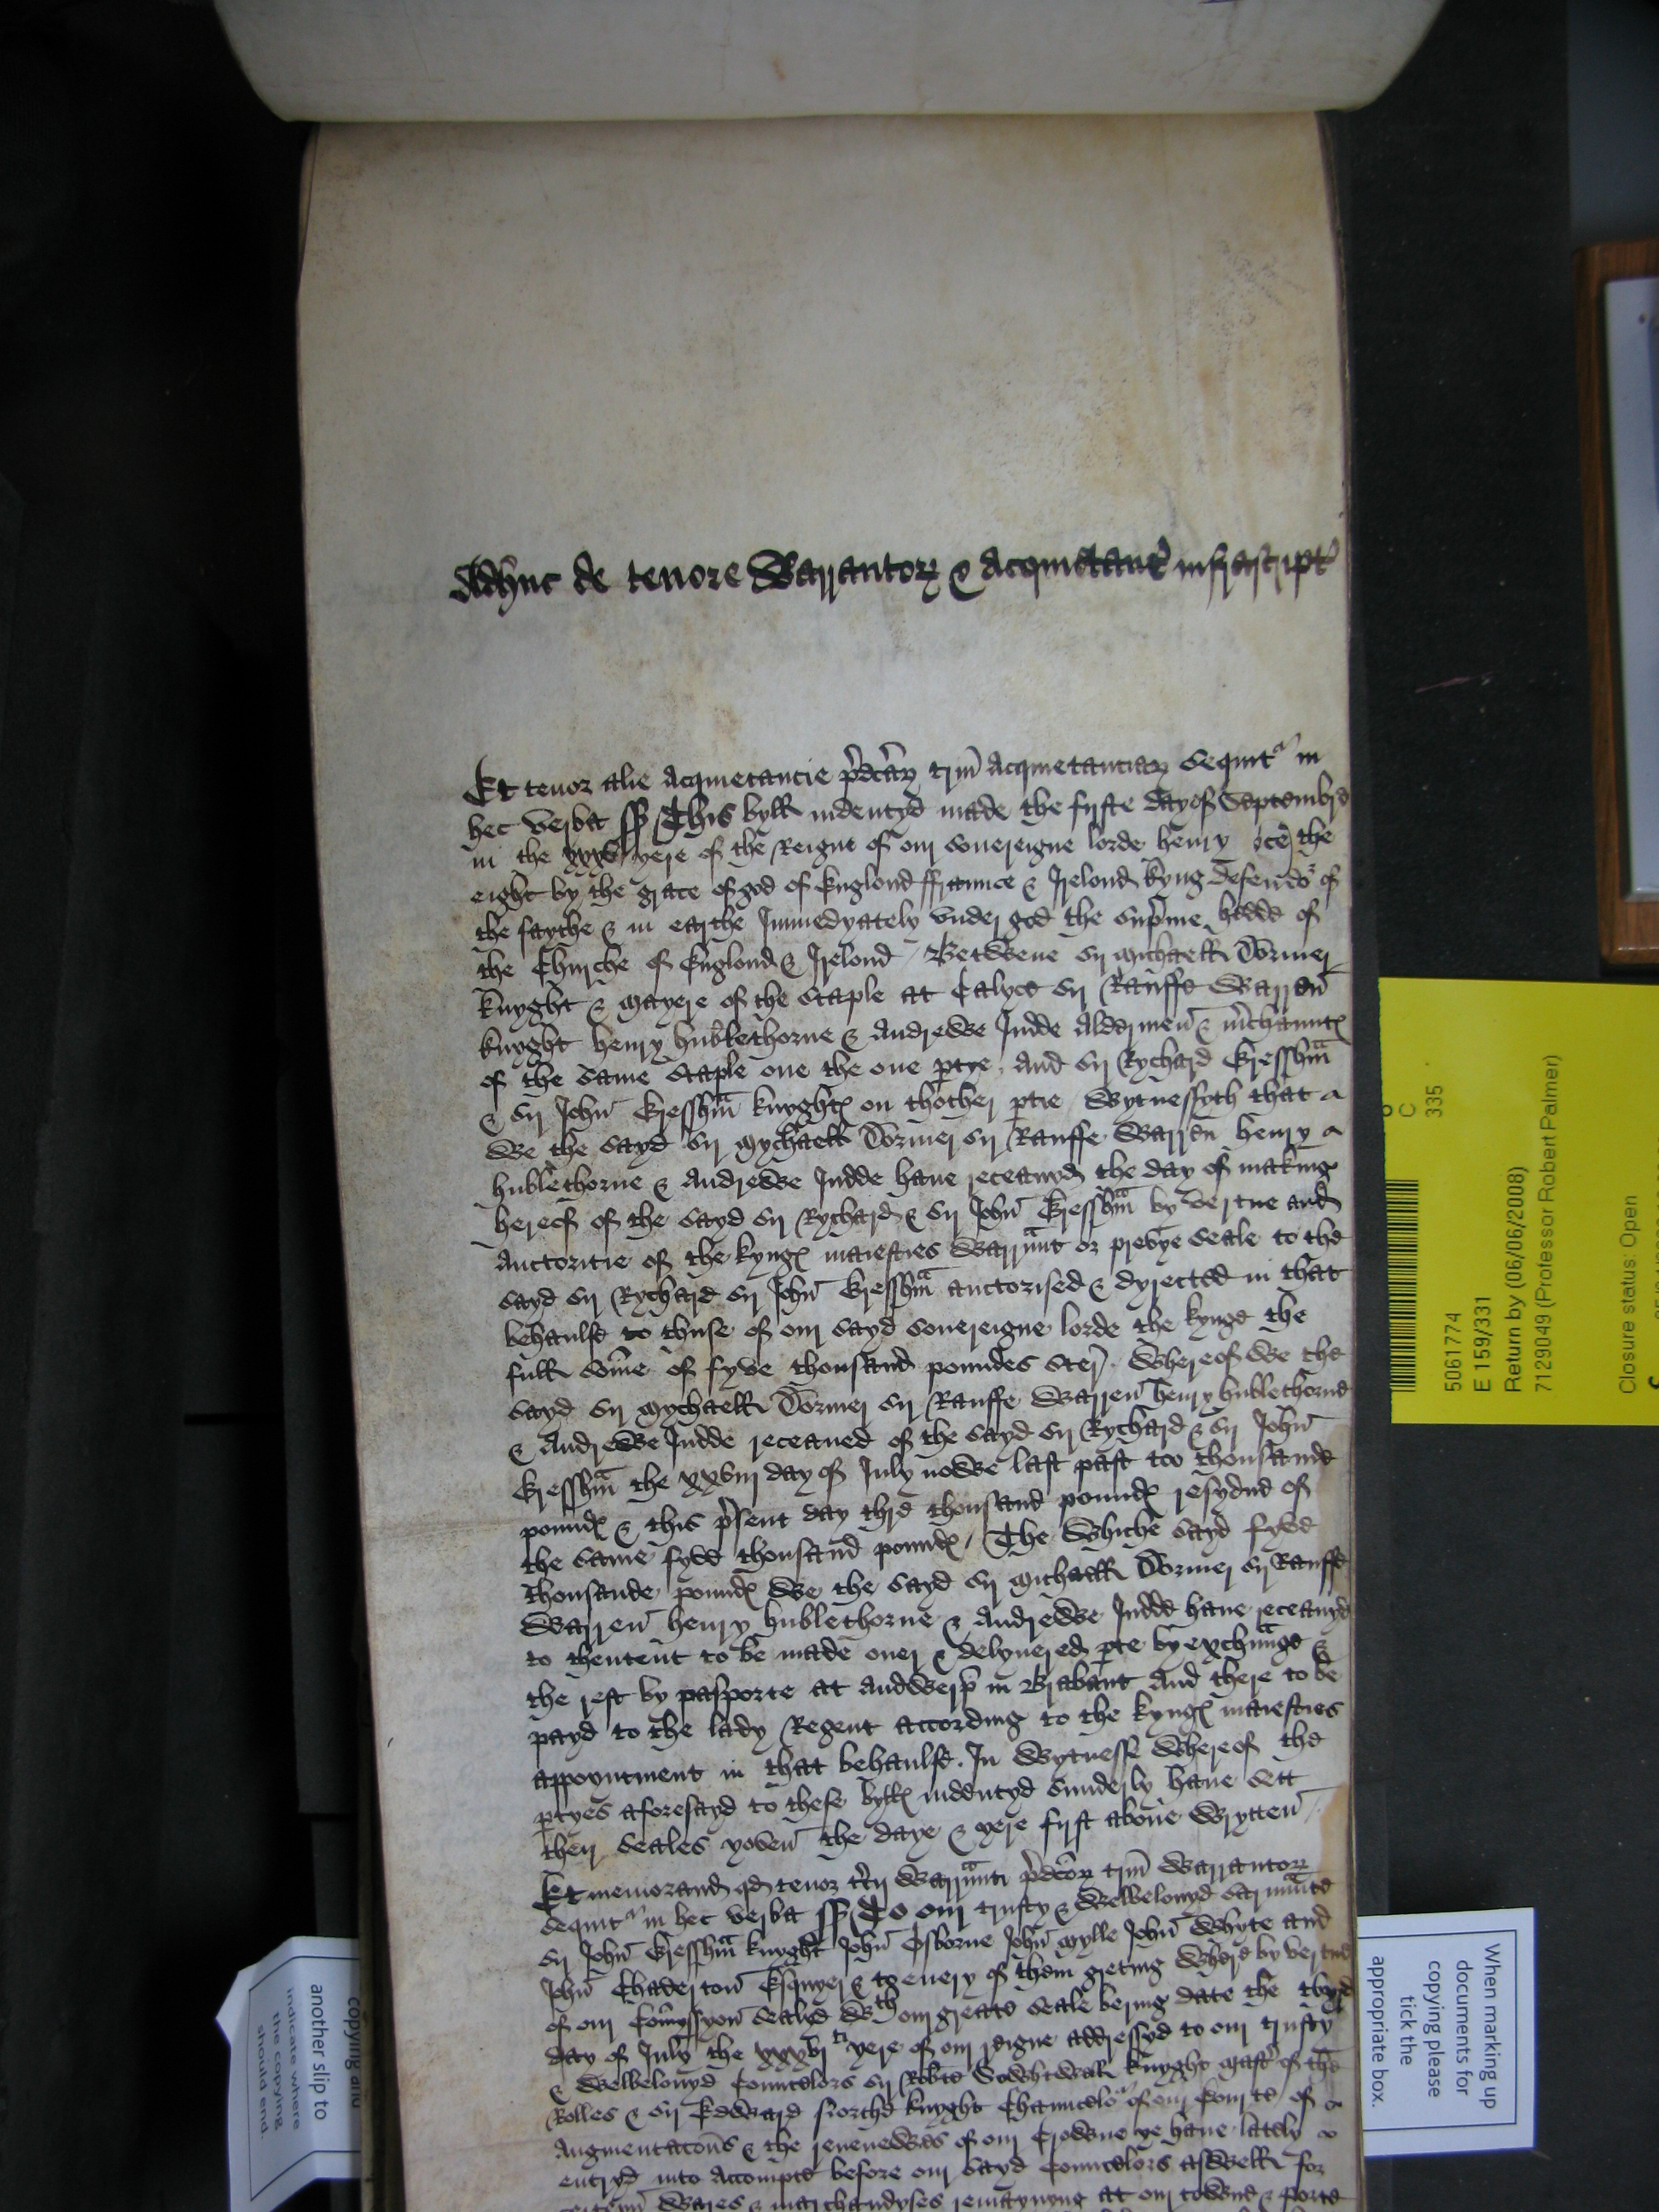 Adhuc de tenore Warrantor & Acquietanc infrascript
Et tenor alie Acquietancie p̄dcār triū Acquietanciar sequitᵃ in
hec verba ss This byll indentyd made the fyrste day of Septembre
in the xxxv yere of the Reigne of our sovereigne lorde henry the
eight by the grace of god of Englond ffraunce & Irelond kyng defendor of
the faythe & in earthe Immedyately vnder god the sup̄me hedde of
the Churche of Englond & Irelond / Betwene Sir Michaell Dormer
knyght & Mayere of the Staple at Calyce Sir Rauffe Warren
knyght henry hublethorne & Andrewe Judde Aldermen & m̄chauntes
of the same Staple one the one ptye, And Sir Rychard Gresshm̄
& Sir John Gresshm̄ knyghtes on thother ptie / Wytnessyth that
We the sayd Sir Mychaell Dormer Sir Rauffe Warren henry
hublethorne & Andrewe Judde haue receauyd the day of making
hereof of the sayd Sir Rychard & Sir John Gresshm̄ by vertue and
Auctoritie of the kynges maiesties Warrant or prevye Seale to the
sayd Sir Rychard Sir John Gresshm̄ auctorised & dyrected in that
behaulfe to thuse of our sayd sovereigne lorde the kynge the
full som̄e of fyve thousand poundes Ster. Whereof We the
sayd Sir Mychaell Dormer Sir Rauffe Warren henry hublethorne
& Andrewe Judde receaued of the sayd Sir Rychard & Sir John
Gresshm̄ the xxviij day of July nowe last past too thousande
poundes & this p̄sent day thre thousand poundes resydue of
the same fyve thousand poundes / The Whiche sayd fyve
thousande poundes We the sayd Sir Michaell Dormer Sir Rauffe
Warren henry hublethorne & Andrewe Judde haue receauyd
to thentent to be made ouer & delyuered pte by exchaunge &
the rest by pasporte at Andwerp in Brabant And there to be
payd to the lady Regent according to the kynges maiesties
appoyntment in that behaulfe. In Wytnesse Whereof the
ptyes aforesayd to these bylles indentyd sunderly haue sett
their Seales yoven the daye & yere first aboue Wrytten
Et memorand qd tenor tcij Warranti p̄dcor triū Warrantor
sequitᵃ in hec verba ss To our trusty & Welbelouyd Seruants
Sir John Gresshm̄ knyght John Osborne John Mylle John Whyte and
John Chaderton Esquyer & to euery of them greting Where by vertue
of our Com̄yssyon Sealyd Wᵗʰ our greate Seale bering date the thyrd
day of July the xxxvjᵗⁱ yere of our reigne addressyd to our trusty
& Welbelouyd Councelors Sir Robte Sowthwell knyght Mastr of the
Rolles & Sir Edward Northe knyght Chauncelor of our Courte of
Augmentacons & the reuenewes of our Crowne ye haue lately
entryd into Accompte before our sayd Councelors aswell for
Wares & marchandyses remaynyng at our towne & porte
335
5061774
E 159/331
Return by (06/06/2008)
7129049 (Professor Robert Palmer)
Closure status: Open
When marking up
documents for
copying please
tick the
appropriate box.
copying and
another slip to
indicate where
the copying
should end.